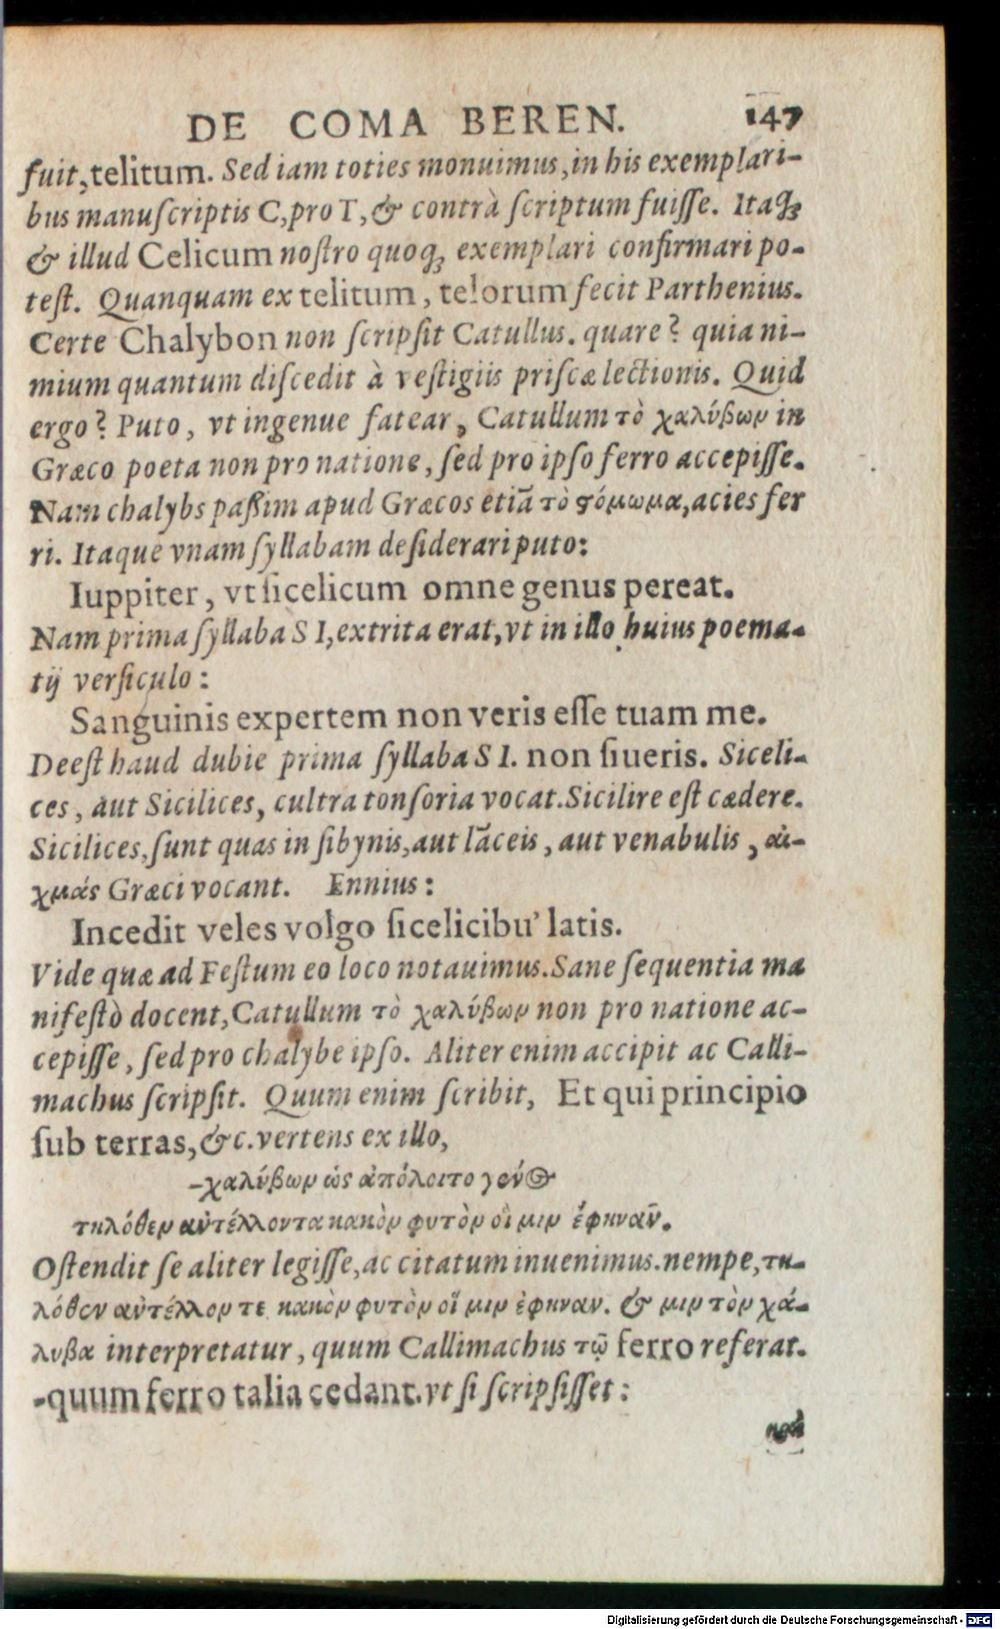 DE COMA BEREN. 147
fuit, telitum. Sed iam toties monuimus, in his exemplari-
bus manuſcriptis C, pro T, & contrà ſcriptum fuiſſe. Itaqꝫ
& illud Celicum noſtro quoqꝫ exemplari confirmari po-
teſt. Quanquam ex telitum, telorum fecit Parthenius.
Certe Chalybon non ſcripſit Catullus. quare? quia ni-
mium quantum diſcedit à veſtigiis priſcæ lectionis. Quid
ergo? Puto, vt ingenue fatear, Catullum τὸ χαλύβων in
Græco poeta non pro natione, ſed pro ipſo ferro accepiſſe.
Nam chalybs paßim apud Græcos etiā τὸ ϛόμωμα, acies fer
ri. Itaque vnam ſyllabam deſiderari puto:
Iuppiter, vt ſicelicum omne genus pereat.
Nam prima ſyllaba S I, extrita erat, vt in illo huius poema-
tij verſiculo:
Sanguinis expertem non veris eſſe tuam me.
Deeſt haud dubie prima ſyllaba S I. non ſiueris. Siceli-
ces, aut Sicilices, cultra tonſoria vocat. Sicilire eſt cædere.
Sicilices, ſunt quas in ſibynis, aut lāceis, aut venabulis, αἰ-
χμάς Græci vocant. Ennius:
Incedit veles volgo ſicelicibu' latis.
Vide quæ ad Feſtum eo loco notauimus. Sane ſequentia ma
nifeſtò docent, Catullum τὸ χαλύβων non pro natione ac-
cepiſſe, ſed pro chalybe ipſo. Aliter enim accipit ac Calli-
machus ſcripſit. Quum enim ſcribit, Et qui principio
ſub terras, &c. vertens ex illo,
-χαλύβων ὡς ἀπόλοιτο γένος
τηλόθεν αὐτέλλοντα κακὸν φυτὸν οἱ μιν ἔφηναν.
Oſtendit ſe aliter legiſſe, ac citatum inuenimus. nempe, τη-
λόθεν αὐτέλλον τε κακὸν φυτὸν οἵ μιν ἐφηναν. & μιν τὸν χά-
λυβα interpretatur, quum Callimachus τῷ ferro referat.
-quum ferro talia cedant. vt ſi ſcripſiſſet:
Digitalisierung gefördert durch die Deutsche Forschungsgemeinschaft - DFG